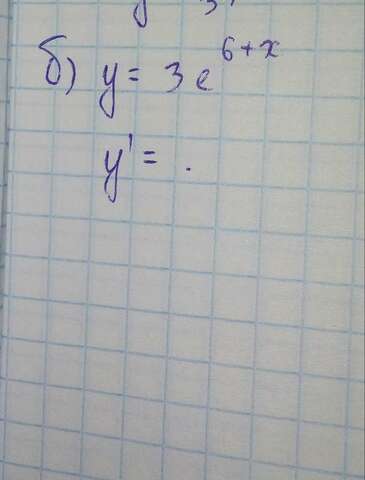 б) y = 3e^{6+x}
y' = .